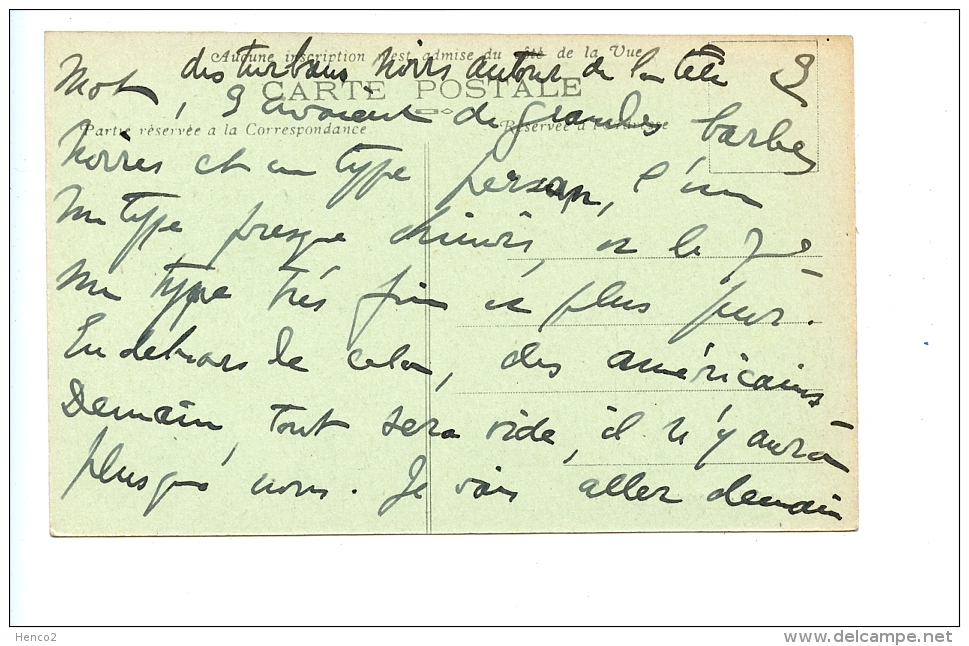 Aucune inscription n'est admise du côté de la Vue
des turbans noirs autour de la tête
CARTE POSTALE
avaient de grandes barbes
Partie réservée à la Correspondance
Réservée à l'adresse
noires et un type persan, l'un
un type presque chinois, et le
un type très fin et plus pur.
En dehors de cela, des américains
Demain, tout sera vide, il n'y aura
plus que nous. Je vais aller demain
Henco2
delcampe.net